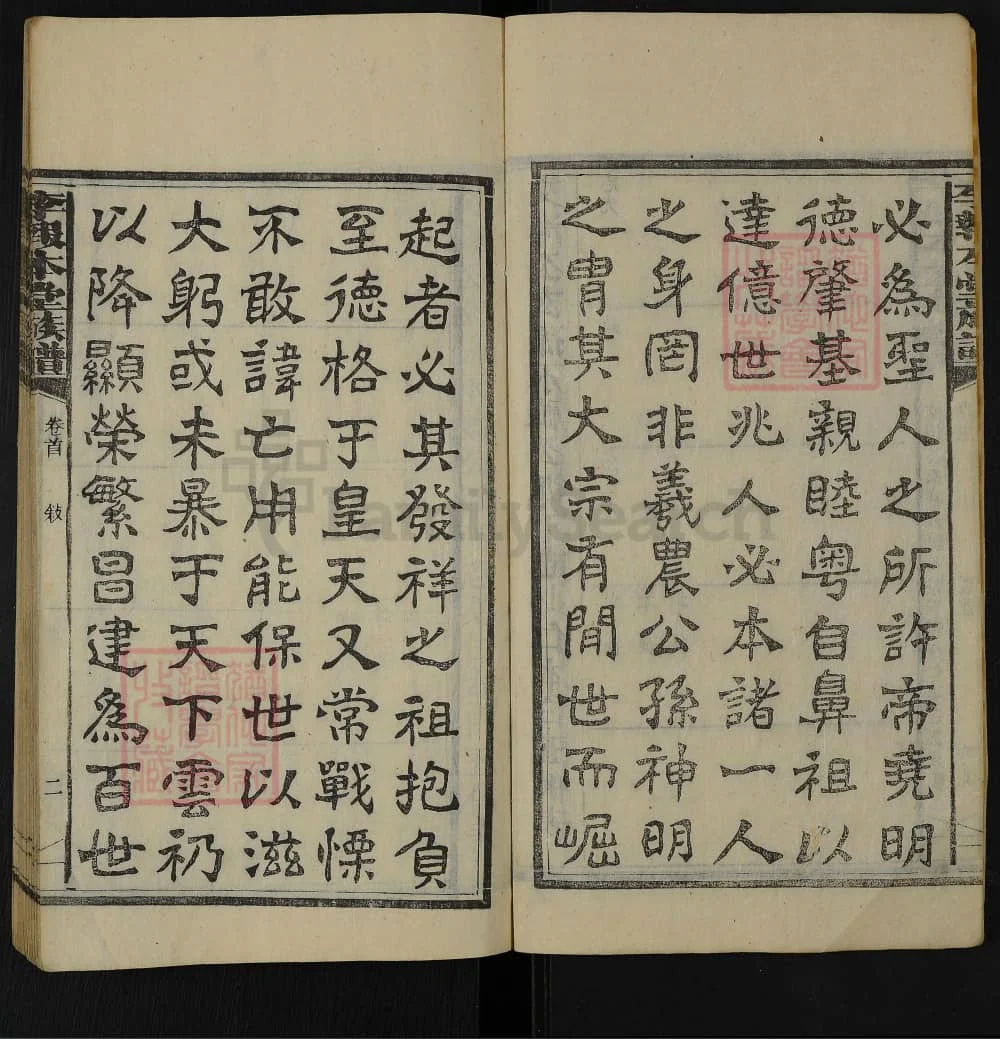 必為聖人之所許帝堯明
德肇基親睦粤自鼻祖以
達億世兆人必本諸一人
之身罔非羲農公孫神明
之胄其大宗有閒世而崛
起者必其發祥之祖抱負
至德格于皇天又常戰慄
不敢諱亡用能保世以滋
大躬或未暴于天下雲礽
以降顯榮繁昌建為百世
李報本堂族譜
卷首
敍
二
FamilySearch